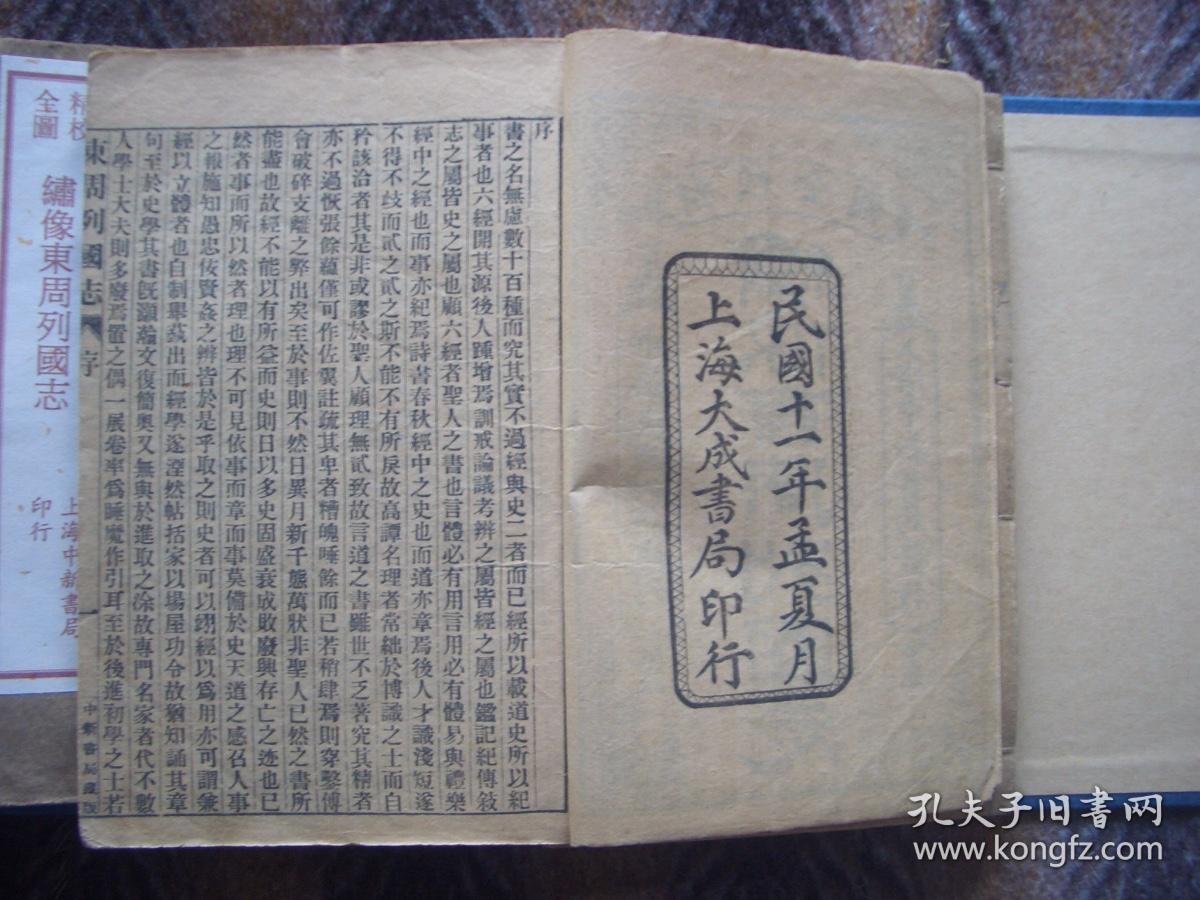 民國十一年孟夏月
上海大成書局印行
序
書之名無慮數十百種而究其實不過經與史二者而已經所以載道史所以紀
事者也六經開其源後人踵增焉訓戒論議考辨之屬皆經之屬也鑑記紀傳敘
志之屬皆史之屬也顧六經者聖人之書也言體必有用言用必有體易與禮樂
經中之經也而事亦紀焉詩書春秋經中之史也而道亦章焉後人才識淺短遂
不得不歧而貳之貳之斯不能不有所戾故高譚名理者常絀於博識之士而自
矜該洽者其是非或謬於聖人顧理無貳致故言道之書雖世不乏著究其精者
亦不過恢張餘蘊僅可作佐翼註疏其卑者糟魄唾餘而已若稍肆焉則穿鑿傅
會破碎支離之弊出矣至於事則不然日異月新千態萬狀非聖人已然之書所
能盡也故經不能以有所益而史則日以多史固盛衰成敗廢興存亡之迹也已
然者事而所以然者理也理不可見依事而章而事莫備於史天道之感召人事
之報施知愚忠佞賢姦之辨皆於是乎取之則史者可以翊經以爲用亦可謂兼
經以立體者也自制舉蓺出而經學遂湮然帖括家以場屋功令故猶知誦其章
句至於史學其書既灝瀚文復簡奥又無與於進取之涂故專門名家者代不數
人學士大夫則多廢焉置之偶一展卷率爲睡魔作引耳至於後進初學之士若
東周列國志 序
一
中新書局藏版
精校
全圖
繡像東周列國志
上海中新書局
印行
孔夫子旧书网
www.kongfz.com